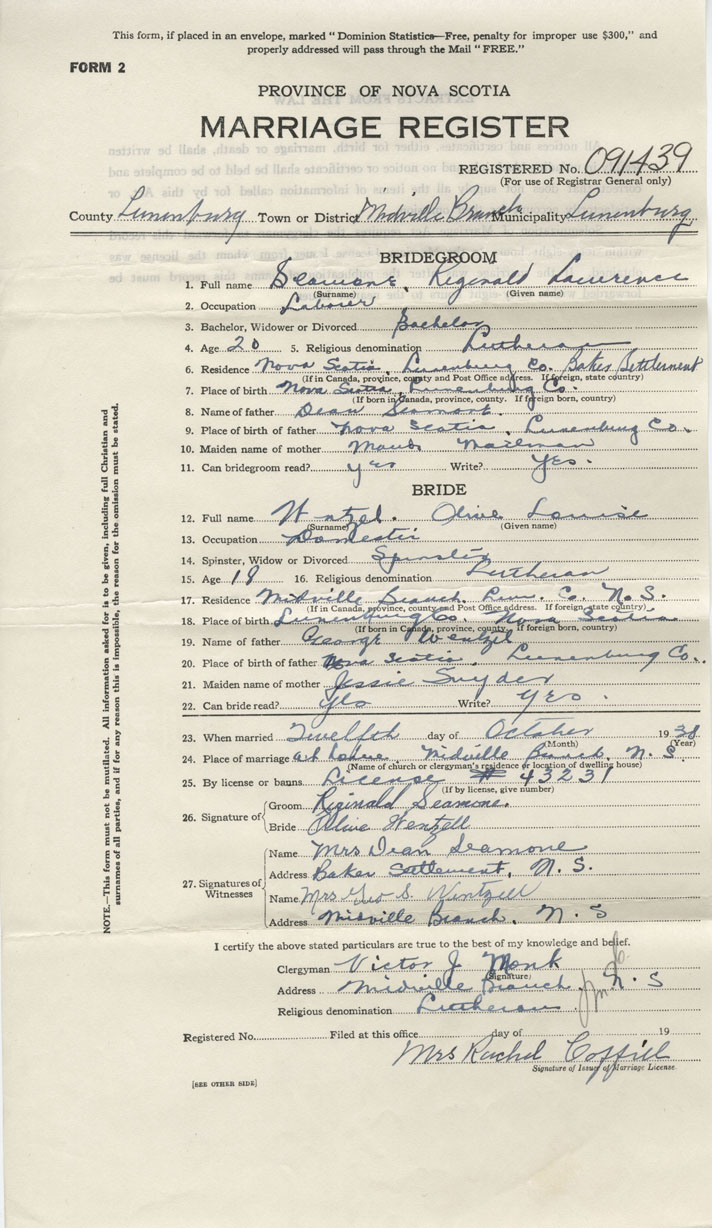 This form, if placed in an envelope, marked "Dominion Statistics—Free, penalty for improper use $300," and
properly addressed will pass through the Mail "FREE."
FORM 2
PROVINCE OF NOVA SCOTIA
MARRIAGE REGISTER
REGISTERED No. 091439
(For use of Registrar General only)
County Lunenburg Town or District Midville Branch Municipality Lunenburg
BRIDEGROOM
1. Full name Seamone, Reginald Lawrence
(Surname) (Given name)
2. Occupation Labourer
3. Bachelor, Widower or Divorced Bachelor
4. Age 20 5. Religious denomination Lutheran
6. Residence Nova Scotia, Lunenburg Co. Baker Settlement
(If in Canada, province, county and Post Office address. If foreign, state country)
7. Place of birth Nova Scotia, Lunenburg Co.
(If born in Canada, province, county. If foreign born, country)
8. Name of father Dean Seamone.
9. Place of birth of father Nova Scotia, Lunenburg Co.
10. Maiden name of mother Maude Mailman
11. Can bridegroom read? yes Write? Yes.
BRIDE
12. Full name Wentzel. Olive Louise
(Surname) (Given name)
13. Occupation Domestic
14. Spinster, Widow or Divorced Spinster
15. Age 18 16. Religious denomination Lutheran
17. Residence Midville Branch, Lun. Co. N.S.
(If in Canada, province, county and Post Office address. If foreign, state country)
18. Place of birth Lunenburg Co. Nova Scotia
(If born in Canada, province, county. If foreign born, country)
19. Name of father George Wentzel
20. Place of birth of father Nova Scotia, Lunenburg Co.
21. Maiden name of mother Jessie Snyder
22. Can bride read? Yes Write? Yes.
23. When married Twelfth day of October 1938
(Month) (Year)
24. Place of marriage at home, Midville Branch, N.S.
(Name of church or clergyman's residence or location of dwelling house)
25. By license or banns License # 43231
(If by license, give number)
26. Signature of Groom Reginald Seamone.
Bride Olive Wentzell
27. Signatures of Witnesses
Name Mrs Dean Seamone
Address Baker Settlement, N.S.
Name Mrs Geo S. Wentzell
Address Midville Branch, N.S
I certify the above stated particulars are true to the best of my knowledge and belief.
Clergyman Victor J. Monk
(Signature)
Address Midville Branch, N.S
Religious denomination Lutheran
Registered No. Filed at this office day of 19
Mrs Rachel Coffill
Signature of Issuer of Marriage License.
[SEE OTHER SIDE]
NOTE.—This form must not be mutilated. All information asked for is to be given, including full Christian and
surnames of all parties, and if for any reason this is impossible, the reason for the omission must be stated.